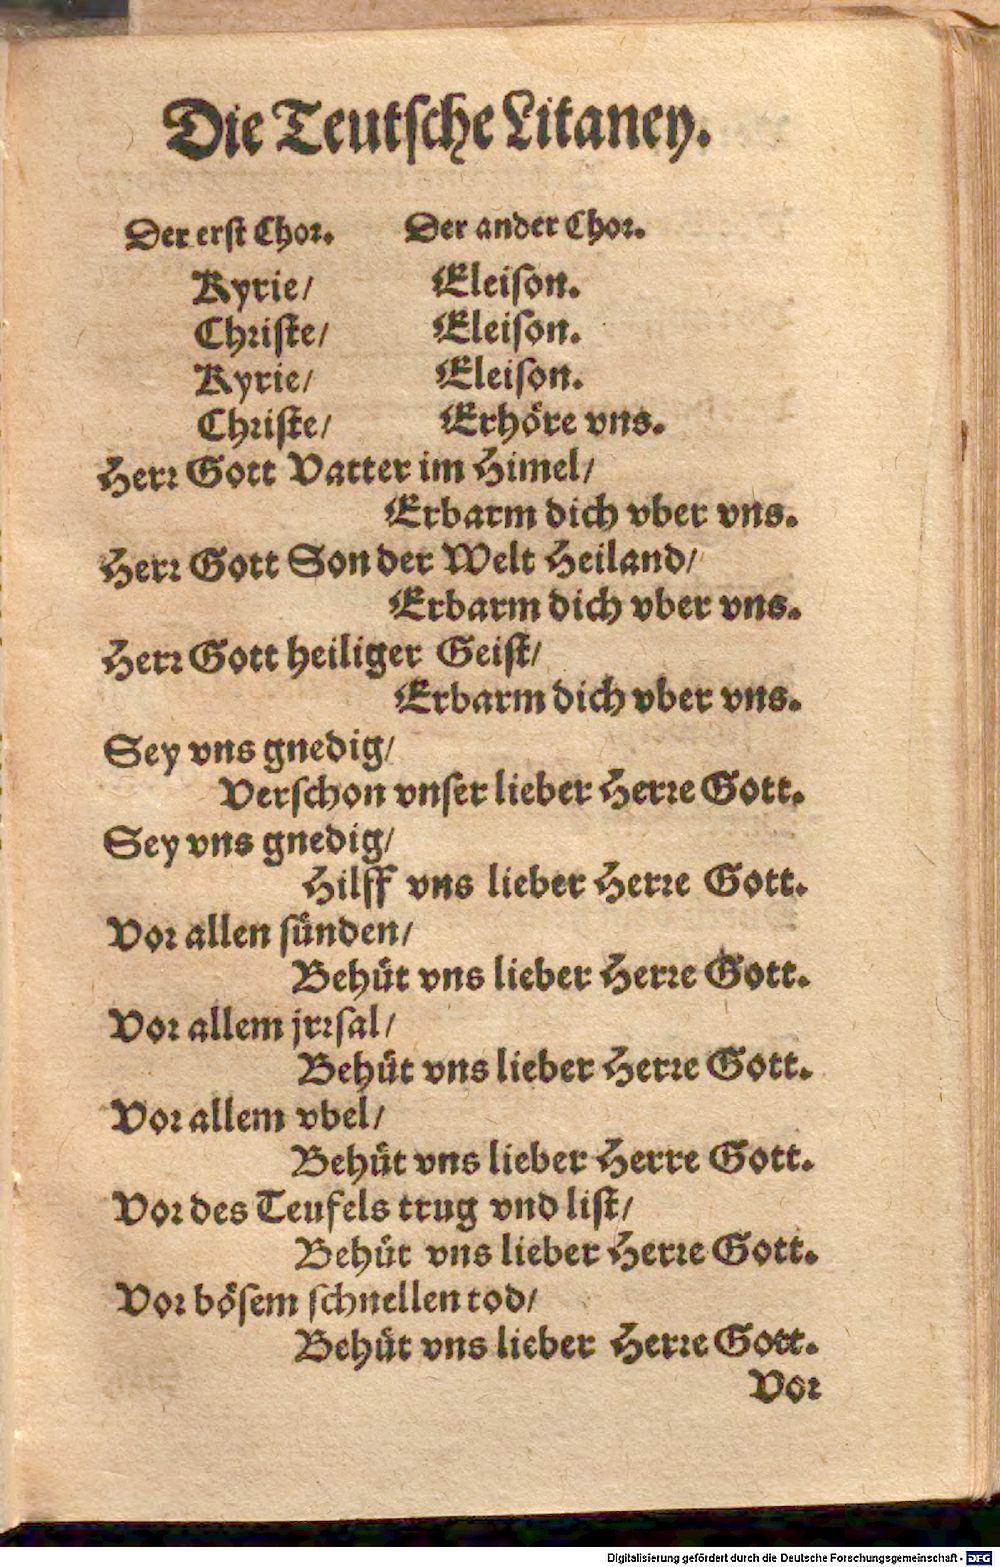 Die Teutsche Litaney.
Der erst Chor. Der ander Chor.
Kyrie/ Eleison.
Christe/ Eleison.
Kyrie/ Eleison.
Christe/ Erhöre vns.
Herr Gott Vatter im Himel/
Erbarm dich vber vns.
Herr Gott Son der Welt Heiland/
Erbarm dich vber vns.
Herr Gott heiliger Geist/
Erbarm dich vber vns.
Sey vns gnedig/
Verschon vnser lieber Herre Gott.
Sey vns gnedig/
Hilff vns lieber Herre Gott.
Vor allen sünden/
Behüt vns lieber Herre Gott.
Vor allem jrrsal/
Behüt vns lieber Herre Gott.
Vor allem vbel/
Behüt vns lieber Herre Gott.
Vor des Teufels trug vnd list/
Behüt vns lieber Herre Gott.
Vor bösem schnellen tod/
Behüt vns lieber Herre Gott.
Vor
Digitalisierung gefördert durch die Deutsche Forschungsgemeinschaft - DFG